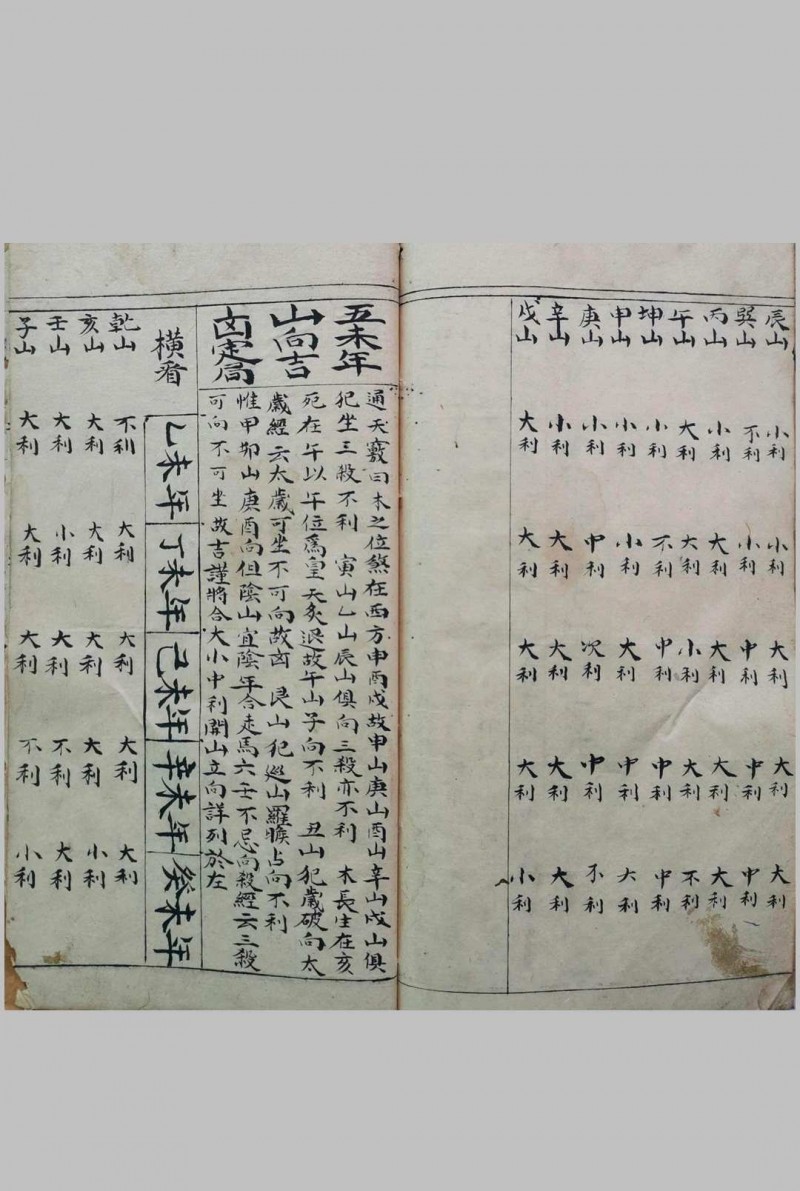 辰山 小利 小利 大利 大利 大利
巽山 不利 小利 中利 中利 中利
丙山 小利 大利 大利 大利 大利
午山 大利 大利 小利 大利 不利
坤山 小利 不利 中利 中利 中利
申山 小利 小利 大利 中利 大利
庚山 小利 中利 次利 中利 不利
辛山 小利 大利 大利 大利 大利
戌山 大利 大利 大利 大利 小利
五未年
山向吉
凶定局
通天竅曰木之位煞在西方申酉戌故申山庚山酉山辛山戌山俱
犯坐三殺不利 寅山乙山辰山俱向三殺亦不利 木長生在亥
死在午以午位爲皇天炙退故午山子向不利 丑山犯歲破向太
歲經云太歲可坐不可向故凶 艮山犯巡山羅㬋占向不利
惟甲卯山庚酉向但陰山宜陰年合走馬六壬不忌向殺經云三殺
可向不可坐故吉謹將合大小中利開山立向詳列於左
橫看 乙未年 丁未年 己未年 辛未年 癸未年
乾山 不利 大利 大利 大利 大利
亥山 大利 大利 大利 大利 小利
壬山 大利 小利 大利 不利 大利
子山 大利 大利 大利 不利 小利